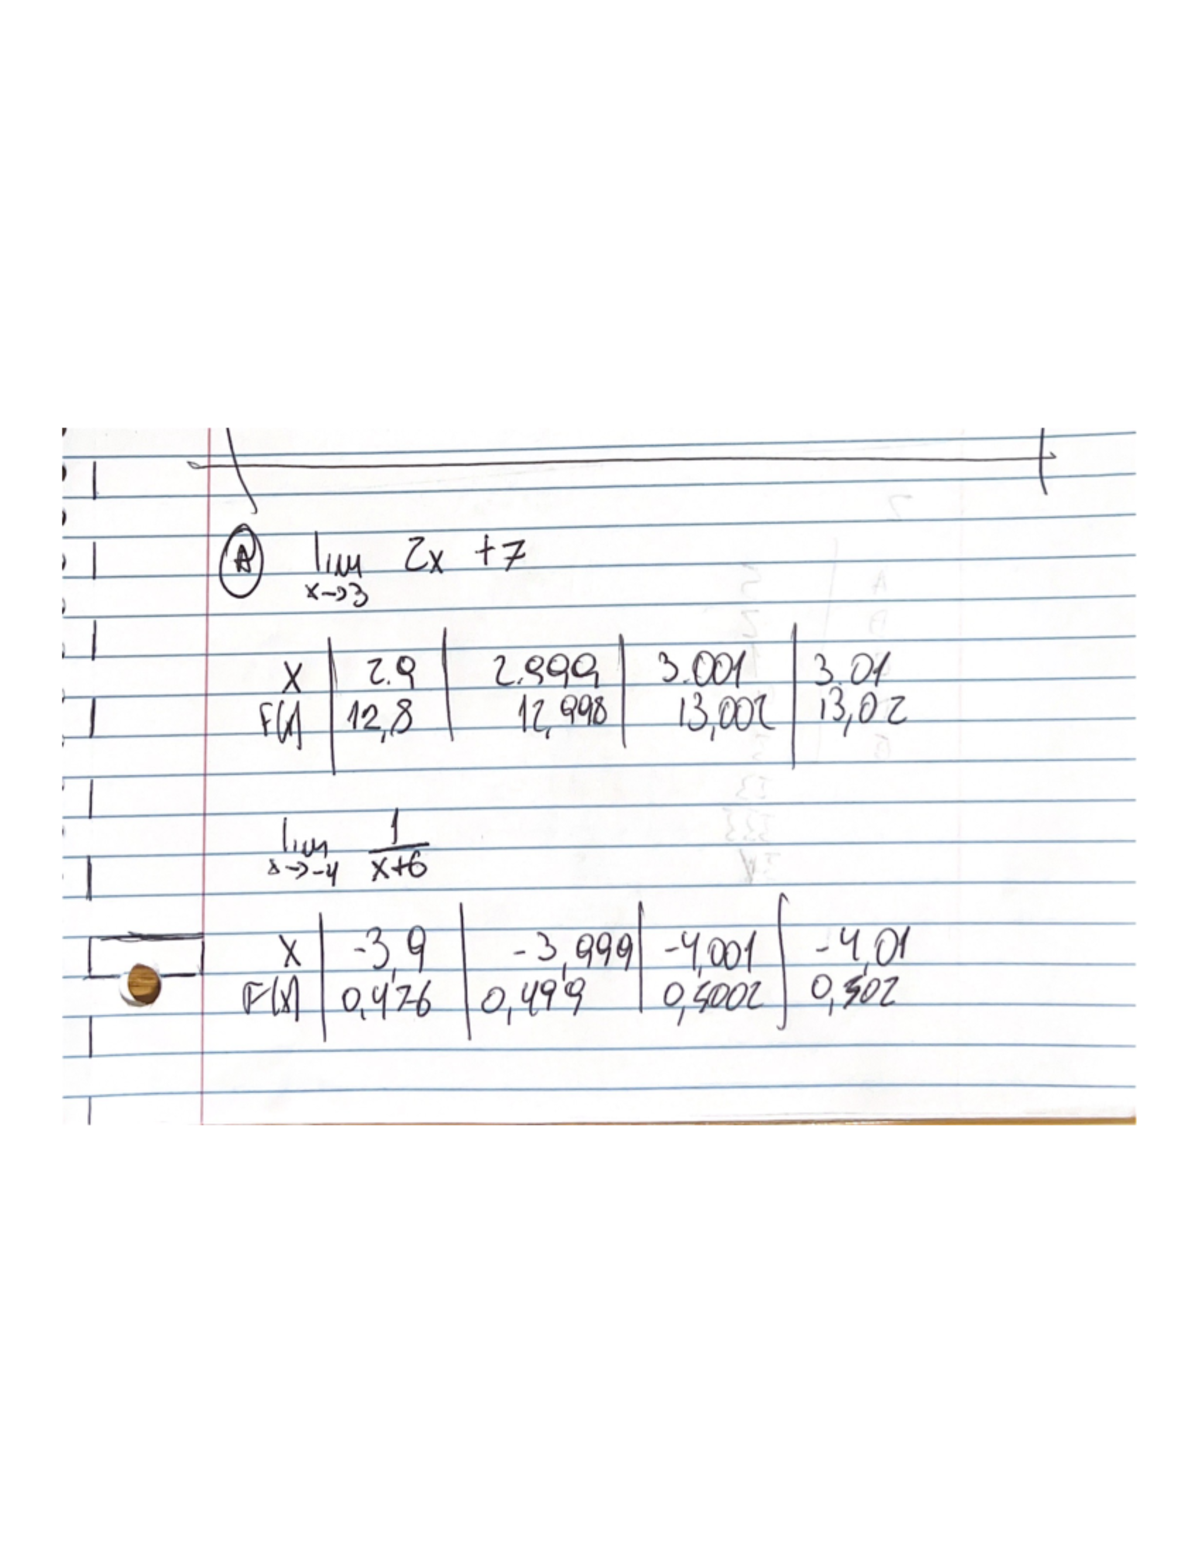 A lim 2x + 7
x→3
x | 2.9 | 2.999 | 3.001 | 3.01
F(x) | 12,8 | 12,998 | 13,002 | 13,02
lim 1
x→-4 x+6
x | -3,9 | -3,999 | -4,001 | -4,01
F(x) | 0,476 | 0,499 | 0,5002 | 0,502